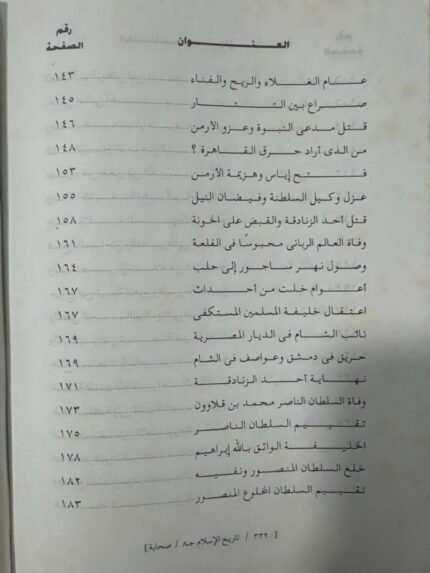 العنوان رقم الصفحة
عام الغلاء والريح والفناء ١٤٣
صراع بين التتار ١٤٥
قتل مدعى النبوة وغزو الأرمن ١٤٦
من الذى أراد حرق القاهرة ؟ ١٤٨
فتح إياس وهزيمة الأرمن ١٥٣
عزل وكيل السلطنة وفيضان النيل ١٥٥
قتل أحد الزنادقة والقبض على الخونة ١٥٨
وفاة العالم الربانى محبوسًا فى القلعة ١٦١
وصول نهر ساجور إلى حلب ١٦٤
أعوام خلت من أحداث ١٦٧
اعتقال خليفة المسلمين المستكفى ١٦٧
نائب الشام فى الديار المصرية ١٦٩
حريق فى دمشق وعواصف فى الشام ١٦٩
نهاية أحد الزنادقة ١٧١
وفاة السلطان الناصر محمد بن قلاوون ١٧٣
تقييم السلطان الناصر ١٧٥
الخليفة الواثق بالله إبراهيم ١٧٨
خلع السلطان المنصور ونفيه ١٨٢
تقييم السلطان المخلوع المنصور ١٨٣
[ ٣٣٢ / تاريخ الإسلام جـ٨ / صحابة ]